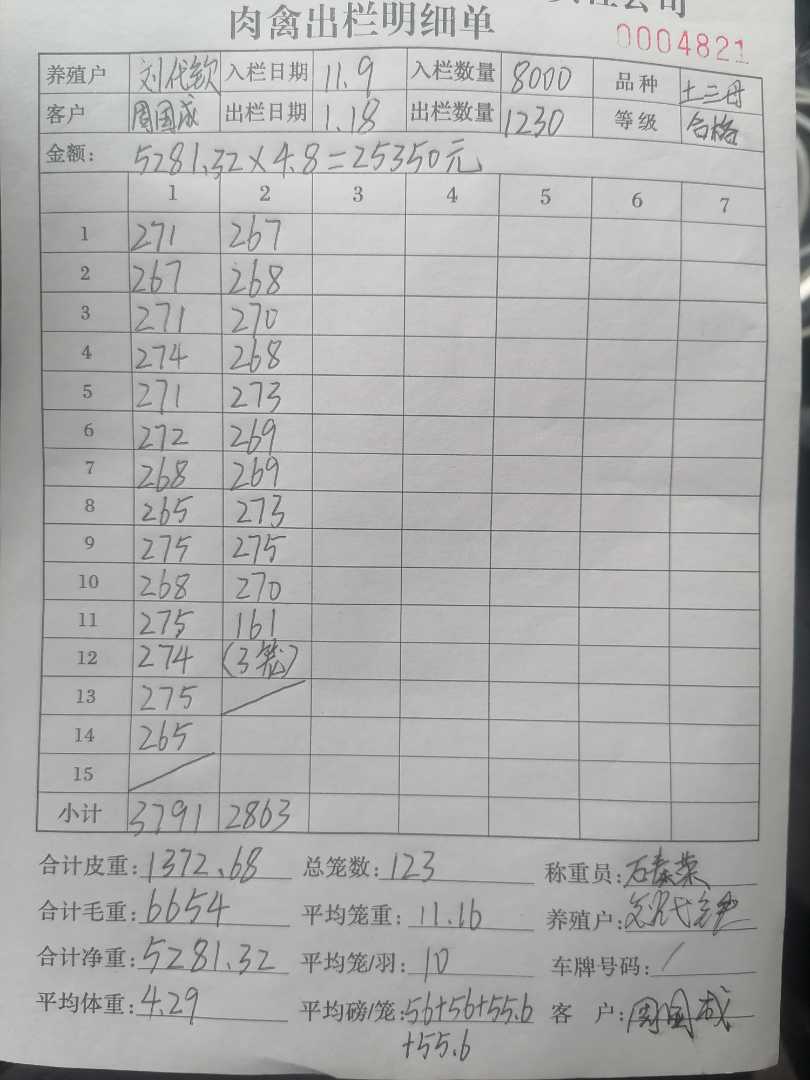 肉禽出栏明细单
0004821
养殖户 刘代钦 入栏日期 11.9 入栏数量 8000 品种 土三丹
客户 周国成 出栏日期 1.18 出栏数量 1230 等级 合格
金额: 5281.32×4.8=25350元
1 2 3 4 5 6 7
1 271 267
2 267 268
3 271 270
4 274 268
5 271 273
6 272 269
7 268 269
8 265 273
9 275 275
10 268 270
11 275 161
12 274 (3笼)
13 275
14 265
15
小计 3791 2863
合计皮重: 1372.68 总笼数: 123 称重员:
合计毛重: 6654 平均笼重: 11.16 养殖户: 刘代钦
合计净重: 5281.32 平均笼/羽: 10 车牌号码: /
平均体重: 4.29 平均磅/笼: 56+56+55.6 客 户: 周国成
+55.6